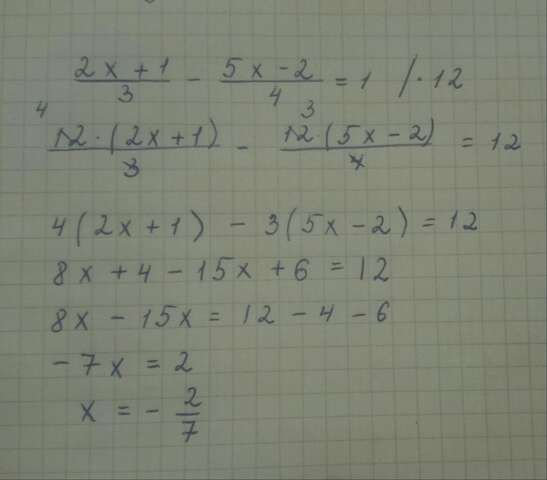 (2x + 1)/3 - (5x - 2)/4 = 1 / · 12
4 12 · (2x + 1)/3 - 3 12 · (5x - 2)/4 = 12
4(2x + 1) - 3(5x - 2) = 12
8x + 4 - 15x + 6 = 12
8x - 15x = 12 - 4 - 6
-7x = 2
x = - 2/7